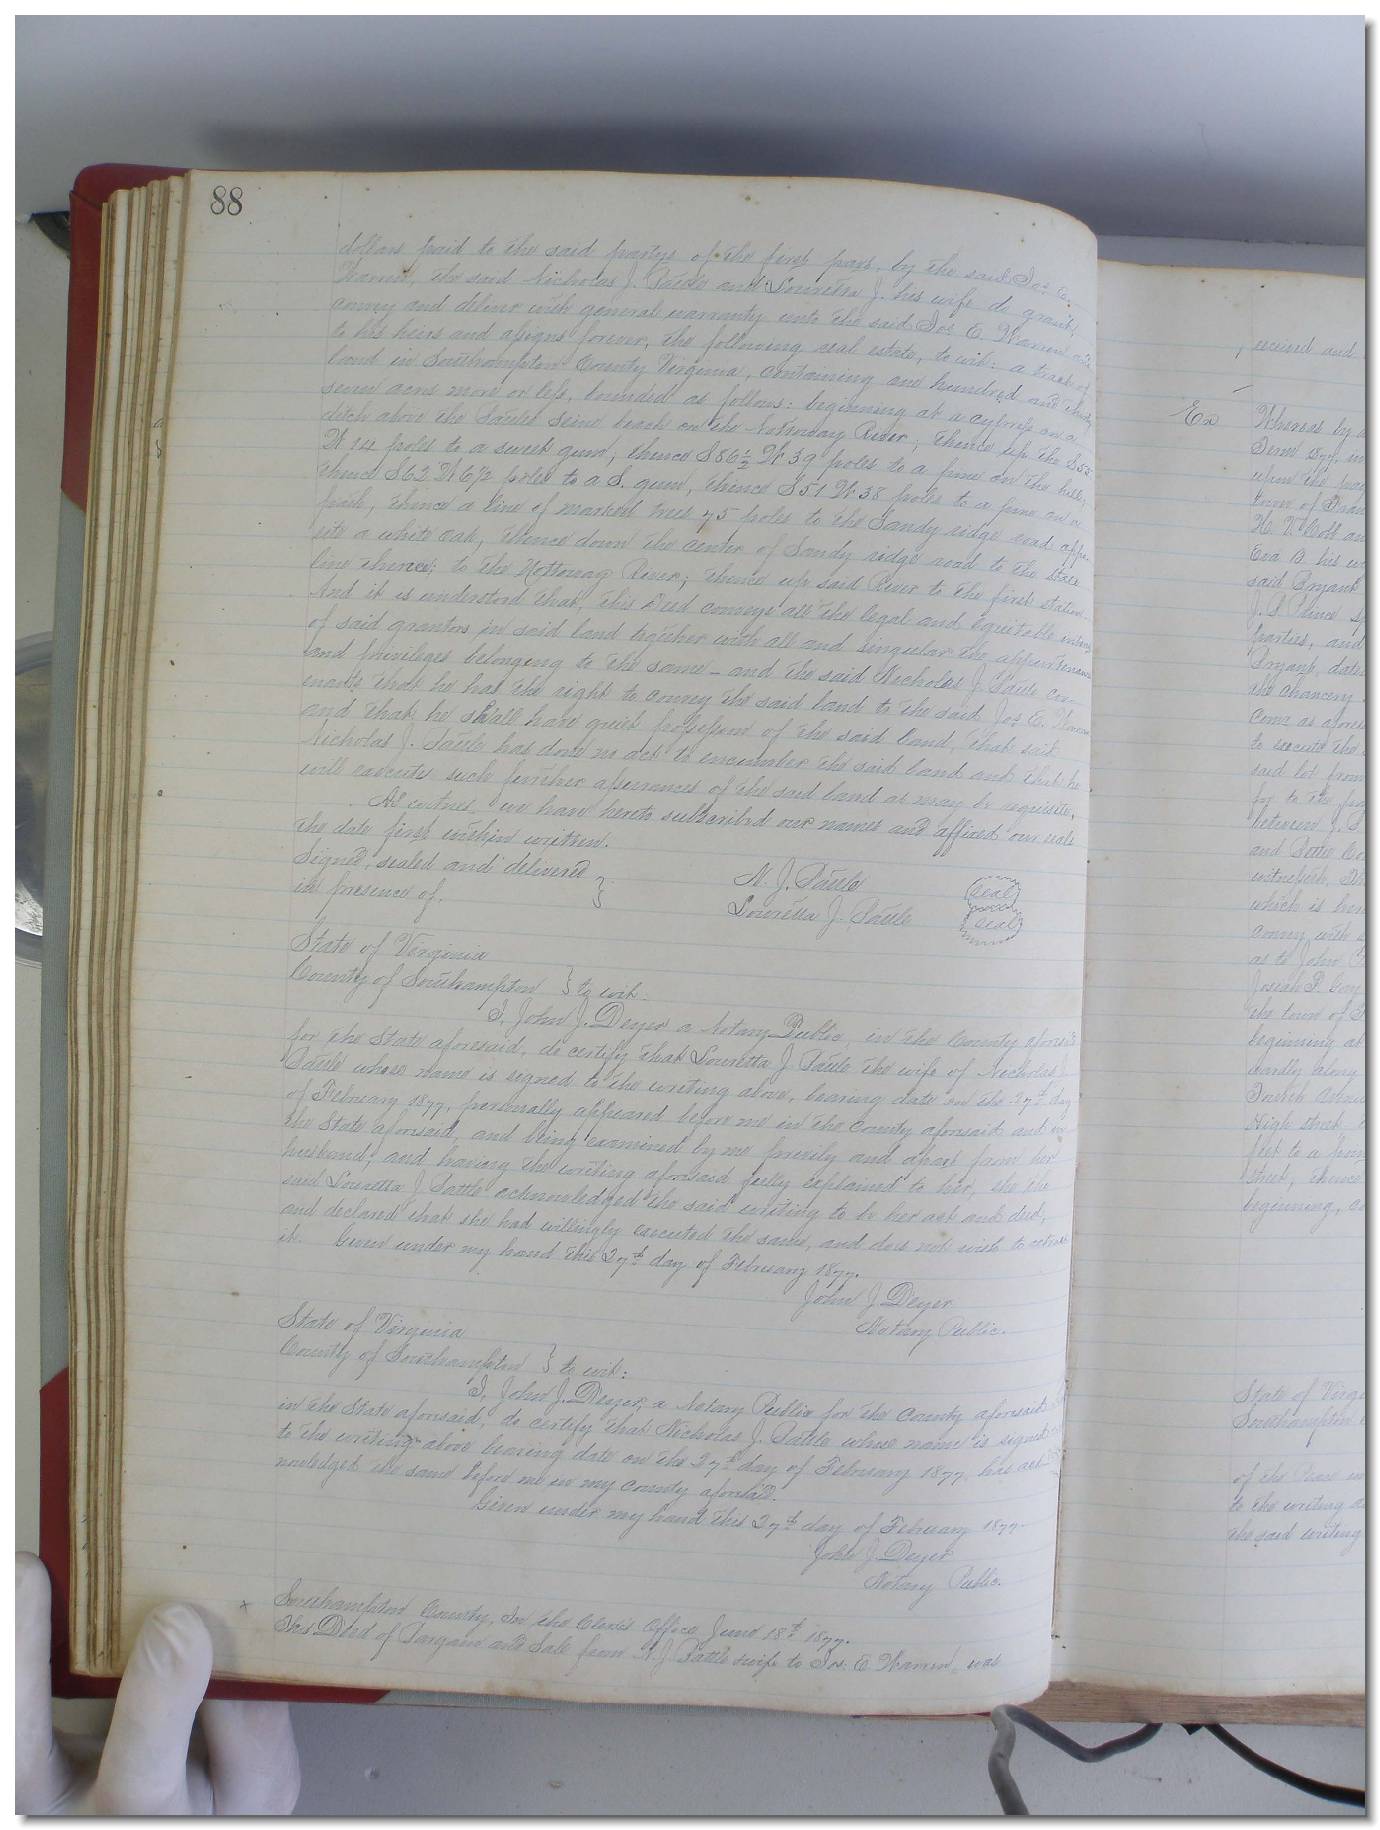 88
dollars paid to the said partys of the first part, by the said Jos. E.
Warren, the said Nicholas J. Pattle and Louretta J. his wife do grant,
convey and deliver with general warranty unto the said Jos E. Warren and
to his heirs and assigns forever, the following real estate, to wit: a tract of
land in Southampton County Virginia, containing one hundred and thirty
seven acres more or less, bounded as follows: beginning at a cypress on a
ditch above the Pattle seine beach on the Nottoway River; thence up the S 55
W 14 poles to a sweet gum, thence S 86½ W 39 poles to a pine on the hill,
thence S 62 W 6½ poles to a S. gum, thence S 51 W 38 poles to a pine on a
path, thence a line of marked trees 75 poles to the Sandy ridge road oppo-
site a white oak, thence down the center of Sandy ridge road to the State
line thence; to the Nottoway River; thence up said River to the first station.
And it is understood that, this Deed conveys all the legal and equitable interest
of said grantors in said land together with all and singular the appurtenances
and privileges belonging to the same – and the said Nicholas J. Pattle cov-
enants that he has the right to convey the said land to the said Jos E. Warren
and that, he shall have quiet possession of the said land, that said
Nicholas J. Pattle has done no act to encumber the said land and that he
will execute such further assurances of the said land as may be requisite.
As witness we have hereto subscribed our names and affixed our seals
the date first within written.
Signed, sealed and delivered
in presence of.
N. J. Pattle Seal
Louretta J. Pattle Seal
State of Virginia
County of Southampton } to wit.
I, John J. Deyer a Notary Public, in the County aforesaid
for the State aforesaid, do certify that Louretta J. Pattle the wife of Nicholas J.
Pattle whose name is signed to the writing above, bearing date on the 27th day
of February 1877, personally appeared before me in the County aforesaid and in
the State aforesaid, and being examined by me privily and apart from her
husband, and having the writing aforesaid fully explained to her, she the
said Louretta J Pattle acknowledged the said writing to be her act and deed,
and declared that she had willingly executed the same, and does not wish to retract
it. Given under my hand this 27th day of February 1877.
John J Deyer
Notary Public.
State of Virginia
County of Southampton } to wit:
I, John J. Deyer, a Notary Public for the County aforesaid
in the State aforesaid, do certify that Nicholas J. Pattle whose name is signed
to the writing above bearing date on the 27th day of February 1877, has ack-
nowledged the same before me in my County aforesaid.
Given under my hand this 27th day of February 1877.
John J. Deyer
Notary Public.
x Southampton County, In the Clerk's Office June 18th 1877.
This Deed of Bargain and Sale from N. J. Pattle & wife to Jos. E. Warren, was
received and
Ex Whereas by a
Term 1877, in
upon the
town of
H. V. Cobb an
Eva B. his w
said Bryant
J. P. Prince
parties, and
Bryant, date
the chancery
Come as afores
to execute the
said lot from
for to the
between J.
and
witnesseth, Th
which is her
convey with
as to John
Josiah P. Gay
the town of F
beginning at
wardly along
Fourth Avenue
High street
feet to a
street, thence
beginning, co
State of Virgi
Southampton
of the
to the writing a
the said writing